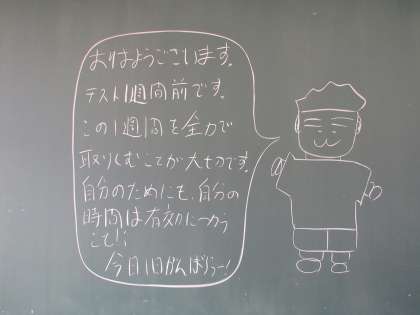 おはようございます。
テスト1週間前です。
この1週間を全力で
取りくむことが大切です。
自分のためにも、自分の
時間は有効につかう
こと!!
今日1日がんばろうー!